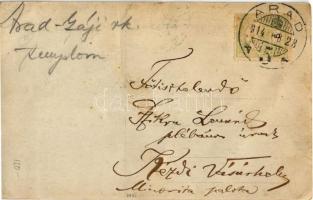 Arad-Gáji rk.
templom
ARAD
914
28
Főtisztelendő
plébános úrnak
Kézdi Vásárhely
Minorita palota